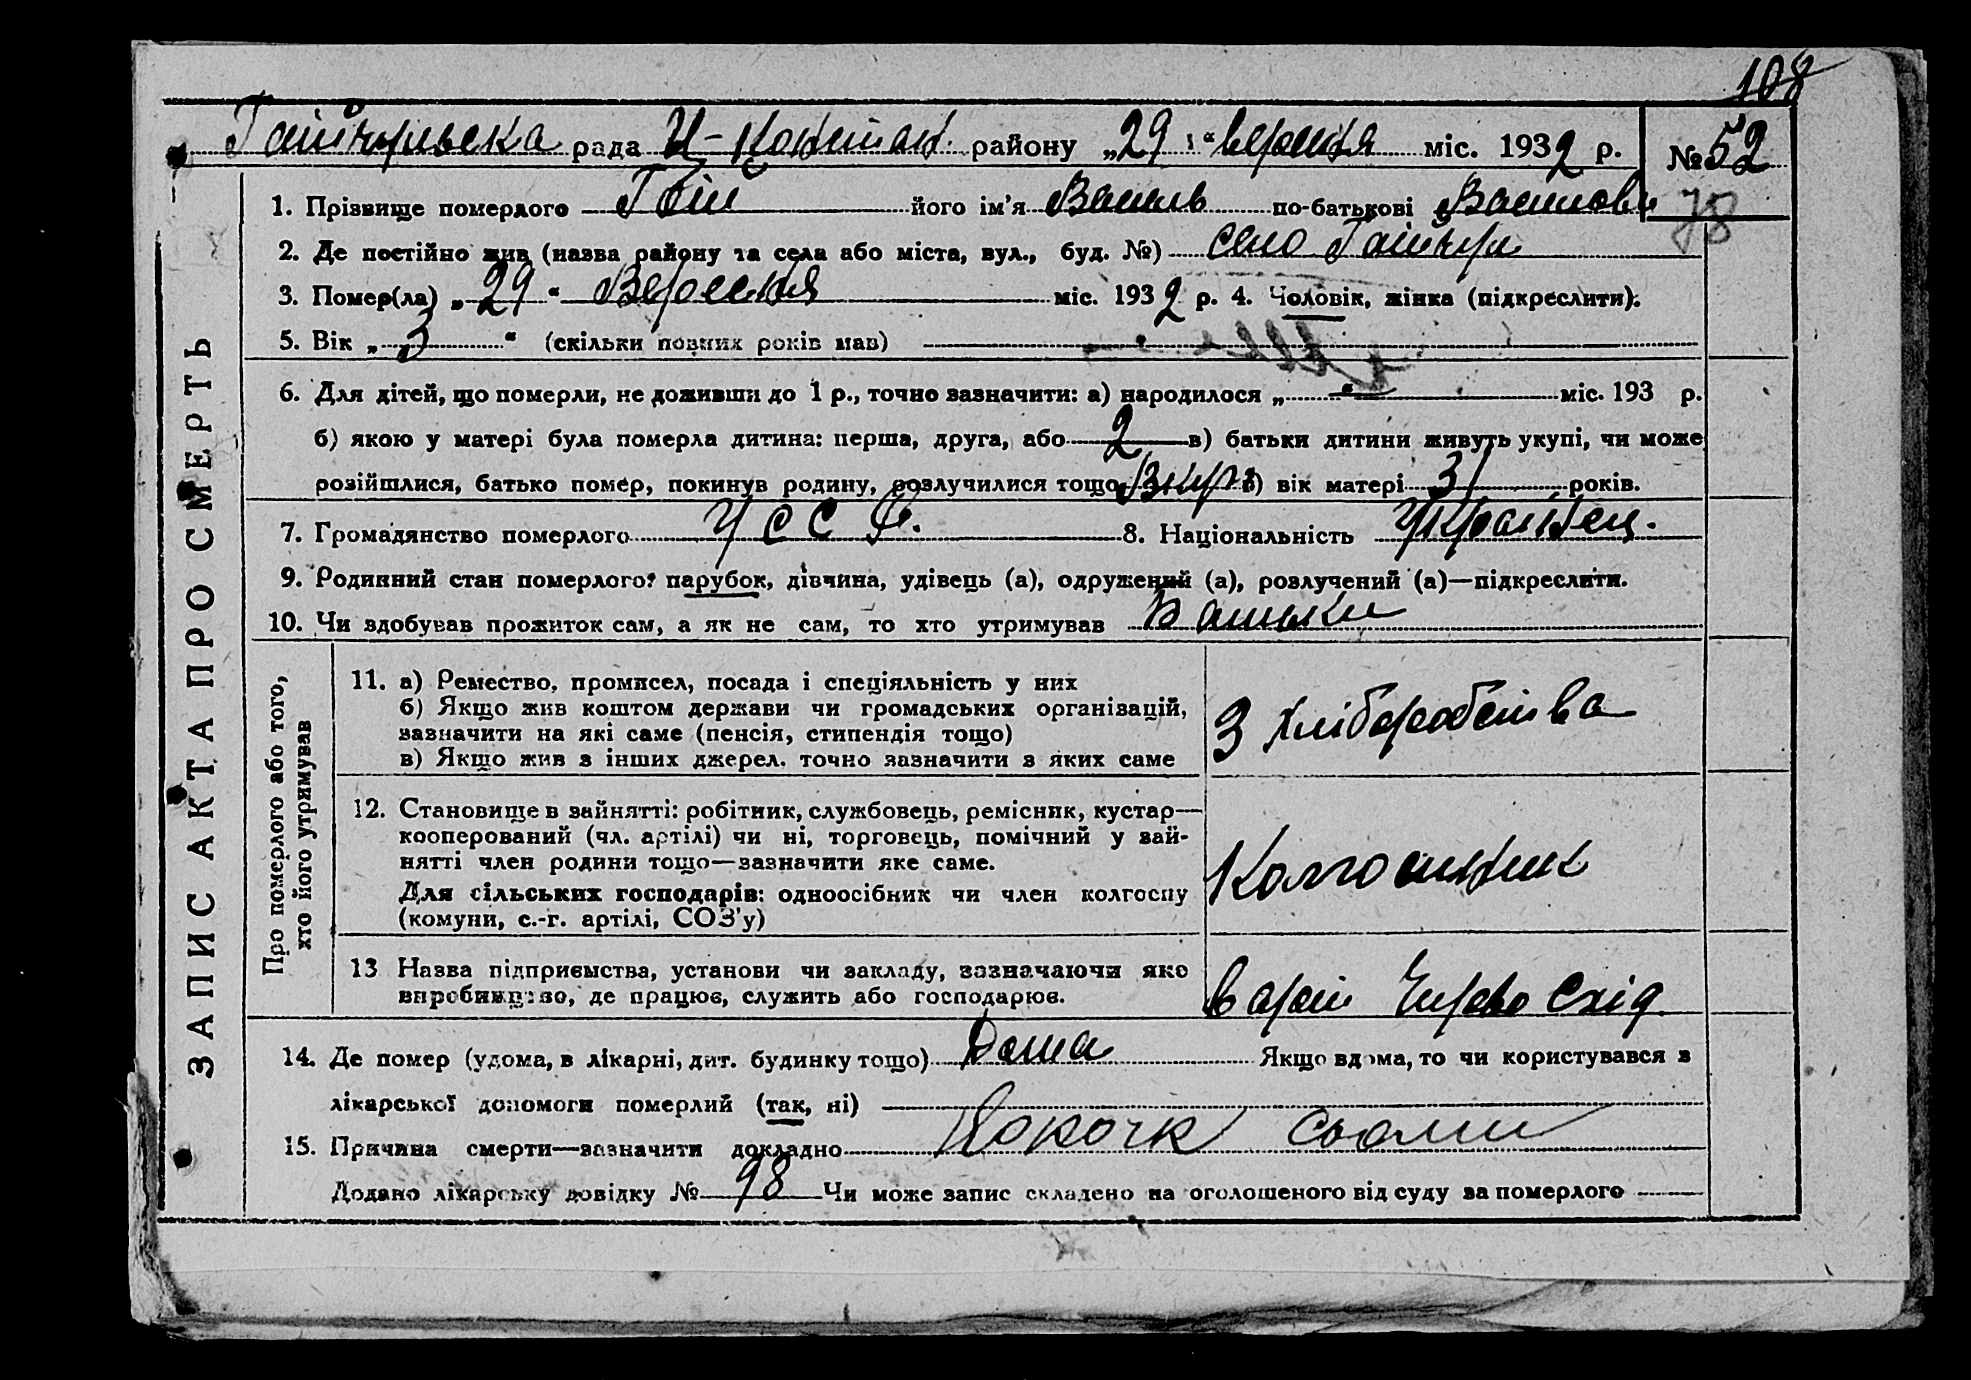 108
Гайчульска рада Н-Констан. району „29“ вересня міс. 1932 р. № 52
1. Прізвище померлого його ім'я Василь по-батькові Василови 78
2. Де постійно жив (назва району та села або міста, вул., буд. №) село Гайчул
3. Помер(ла) „29“ Вересня міс. 1932 р. 4. Чоловік, жінка (підкреслити).
5. Вік „3“ (скільки повних років мав)
6. Для дітей, що померли, не доживши до 1 р., точно зазначити: а) народилося „ “ міс. 193 р.
б) якою у матері була померла дитина: перша, друга, або 2 в) батьки дитини живуть укупі, чи може
розійшлися, батько помер, покинув родину, розлучилися тощо г) вік матері 31 років.
7. Громадянство померлого УССР. 8. Національність Украінец.
9. Родинний стан померлого: парубок, дівчина, удівець (а), одружений (а), розлучений (а)—підкреслити.
10. Чи здобував прожиток сам, а як не сам, то хто утримував Батьки
ЗАПИС АКТА ПРО СМЕРТЬ
Про померлого або того, хто його утримував
11. а) Ремество, промисел, посада і спеціяльність у них
б) Якщо жив коштом держави чи громадських організацій,
зазначити на які саме (пенсія, стипендія тощо)
в) Якщо жив з інших джерел, точно зазначити з яких саме
З хліборобства
12. Становище в зайнятті: робітник, службовець, ремісник, кустар—
кооперований (чл. артілі) чи ні, торговець, помічний у зай-
нятті член родини тощо—зазначити яке саме.
Для сільських господарів: одноосібник чи член колгоспу
(комуни, с.-г. артілі, СОЗ'у)
Колгоспник
13 Назва підприємства, установи чи закладу, зазначаючи яке
виробництво, де працює, служить або господарює.
в артіі Черво Схід
14. Де помер (удома, в лікарні, дит. будинку тощо) Дома Якщо вдома, то чи користувався з
лікарської допомоги померлий (так, ні)
15. Причина смерти—зазначити докладно
Додано лікарську довідку № 98 Чи може запис складено на оголошеного від суду за померлого